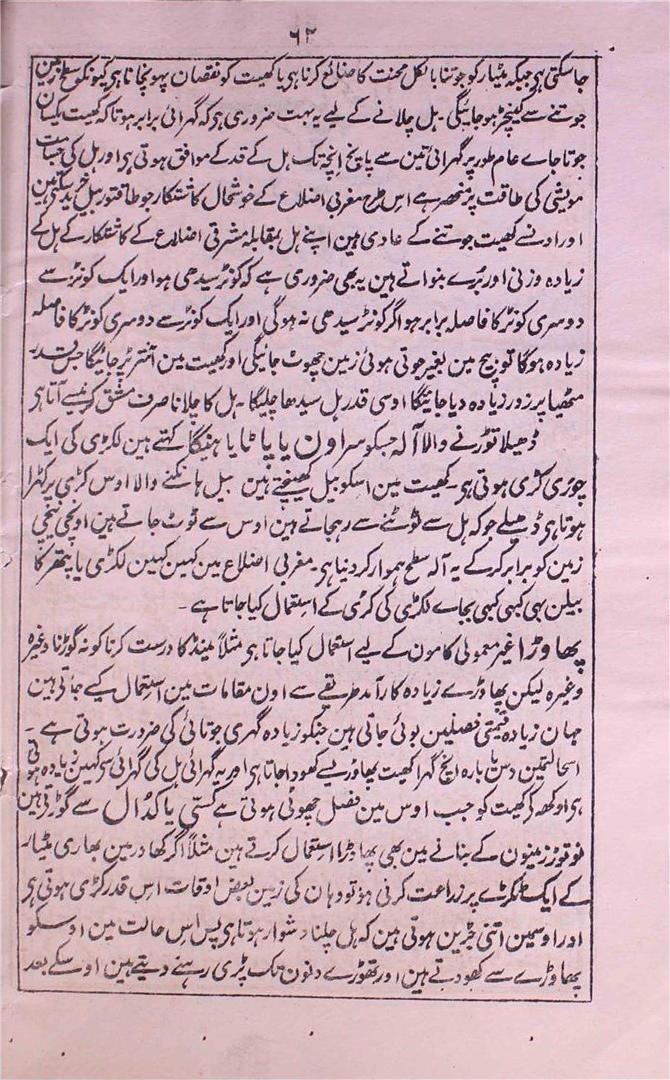 ۶۲
جاسکتی ہی جبکہ مٹیار کو جوتنا بالکل محنت کا ضائع کرنا ہی یا کھیت کو نقصان پہونچانا ہی کیونکہ سطح زمین
جوتنے سے کیچڑ ہو جائیگی ۔ ہل چلانے کے لیے یہ بہت ضروری ہی کہ گہرائی برابر ہو تاکہ کھیت یکسان
جوتا جاے عام طور پر گہرائی تین سے پانچ انچہ تک ہل کے قد کے موافق ہوتی ہی اور ہل کی جسامت
مویشی کی طاقت پر منحصر ہے اس طرح مغربی اضلاع کے خوشحال کاشتکار جو طاقتور بیل خرید سکتے ہین
اور اونسے کھیت جوتنے کے عادی ہین اپنے ہل بمقابلہ مشرقی اضلاع کے کاشتکار کے ہل کے
زیادہ وزنی اور بڑے بنواتے ہین یہ بھی ضروری ہے کہ کونڑ سیدھی ہو اور ایک کونڑ سے
دوسری کونڑ کا فاصلہ برابر ہو اگر کونڑ سیدھی نہ ہوگی اور ایک کونڑ سے دوسری کونڑ کا فاصلہ
زیادہ ہوگا تو بیچ مین بغیر جوتی ہوئی زمین چھوٹ جائیگی اور کھیت مین آنتر پڑ جائیگا جس قدر
متھیا پر زور زیادہ دیا جائیگا اوسی قدر ہل سیدھا چلیگا ۔ ہل کا چلانا صرف مشق کرنیسے آتا ہی
ڈھیلا توڑنے والا آلہ جسکو سراون یا پاٹا یا ہنگا کہتے ہین لکڑی کی ایک
چوڑی کڑی ہوتی ہی ۔ کھیت مین اسکو بیل کھینچتے ہین بیل ہانکنے والا اوس کڑی پر کھڑا
ہوتا ہی ڈھیلے جو کہ ہل سے ٹوٹنے سے رہجاتے ہین اوس سے ٹوٹ جاتے ہین اونچی نیچی
زمین کو برابر کرکے یہ آلہ سطح ہموار کر دیتا ہی ۔ مغربی اضلاع مین کہین کہین لکڑی یا پتھر کا
بیلن بھی کبھی کبھی بجاے لکڑی کی کڑی کے استعمال کیا جاتا ہے ۔
پھاوڑا غیر معمولی کامون کے لیے استعمال کیا جاتا ہی مثلاً مینڈ کا درست کرنا کونہ گوڑنا وغیرہ
وغیرہ لیکن پھاوڑے زیادہ کارآمد طریقے سے اون مقامات مین استعمال کیے جاتی ہین
جہان زیادہ قیمتی فصلین بوئی جاتی ہین جنکو زیادہ گہری جوتائی کی ضرورت ہوتی ہے ۔
اسحالتمین دس یا بارہ انچ گہرا کھیت پھاوڑیسے کھودا جاتا ہی اور یہ گہرائی ہل کی گہرائی سی کہین زیادہ ہوتی
ہی اوکھ کی کھیت کو جب اوس مین فصل چھوٹی ہوتی ہے کسی یا کدال سے گوڑتی ہین
نوتوڑ زمینون کے بنانے مین بھی پھاوڑا استعمال کرتے ہین مثلاً اگر کھادر مین بھاری مٹیار
کے ایک ٹکڑے پر زراعت کرنی ہو تو وہان کی زمین بعض اوقات اس قدر کڑی ہوتی ہی
اور اوسمین اتنی جڑین ہوتی ہین کہ ہل چلنا دشوار ہوتا ہی پس اس حالت مین اوسکو
پھاوڑے سے کھودتے ہین اور تھوڑے دنون تک پڑی رہنے دیتے ہین اوسکے بعد